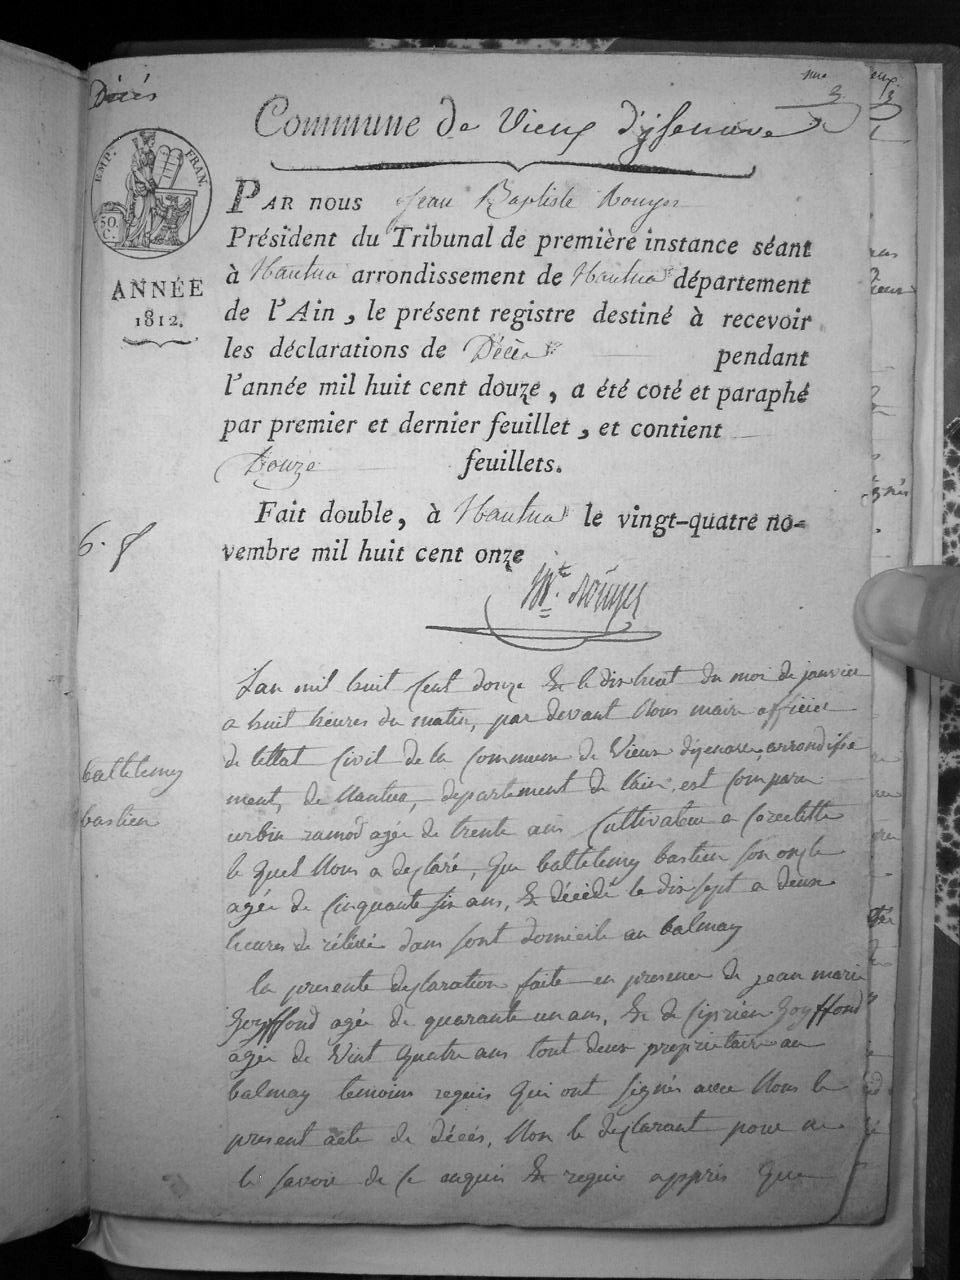 Décès
Commune de Vieux d'ysenave
EMP. FRAN.
50. C.
ANNÉE
1812.
PAR nous Jean Baptiste Rouyer
Président du Tribunal de première instance séant
à Nantua arrondissement de Nantua département
de l'Ain, le présent registre destiné à recevoir
les déclarations de Décès pendant
l'année mil huit cent douze, a été coté et paraphé
par premier et dernier feuillet, et contient
Douze feuillets.
Fait double, à Nantua le vingt-quatre no-
vembre mil huit cent onze
Rouyer
6.
baltelemy
bastien
Lan mil huit Cent douze & le dix huit du moi de janvier
a huit heures du matin, par devant Nous maire officier
de lettat Civil de la Commune de Vieux dizenave, arrondisse
ment, de Nantua, departement de lain, est Comparu
urbin ramod agée de trente ans Cultivateur a Corcelette
le quel Nous a declaré, que baltelemy bastien son oncle
agée de Cinquante six ans, & décédé le dix sept a deux
heures de rélévé dans sont domicile au balmay
la presente declaration faite en presence de jean marie
goyffond agée de quarante un ans, & de Ciprien goyffond
agée de Vint quatre ans tout deux propriétaire au
balmay temoins requis qui ont signés avec Nous le
present acte de décés, Non le declarant pour ne
le savoir de ce enquis & requis apprés que